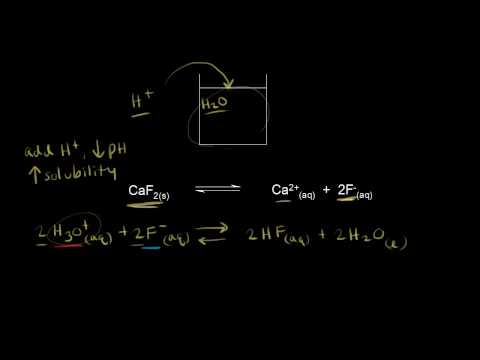 H⁺
H₂O
add H⁺, ↓pH
↑ solubility
CaF₂(s) ⇌ Ca²⁺(aq) + 2F⁻(aq)
2 H₃O⁺(aq) + 2F⁻(aq) ⇌ 2HF(aq) + 2H₂O(l)